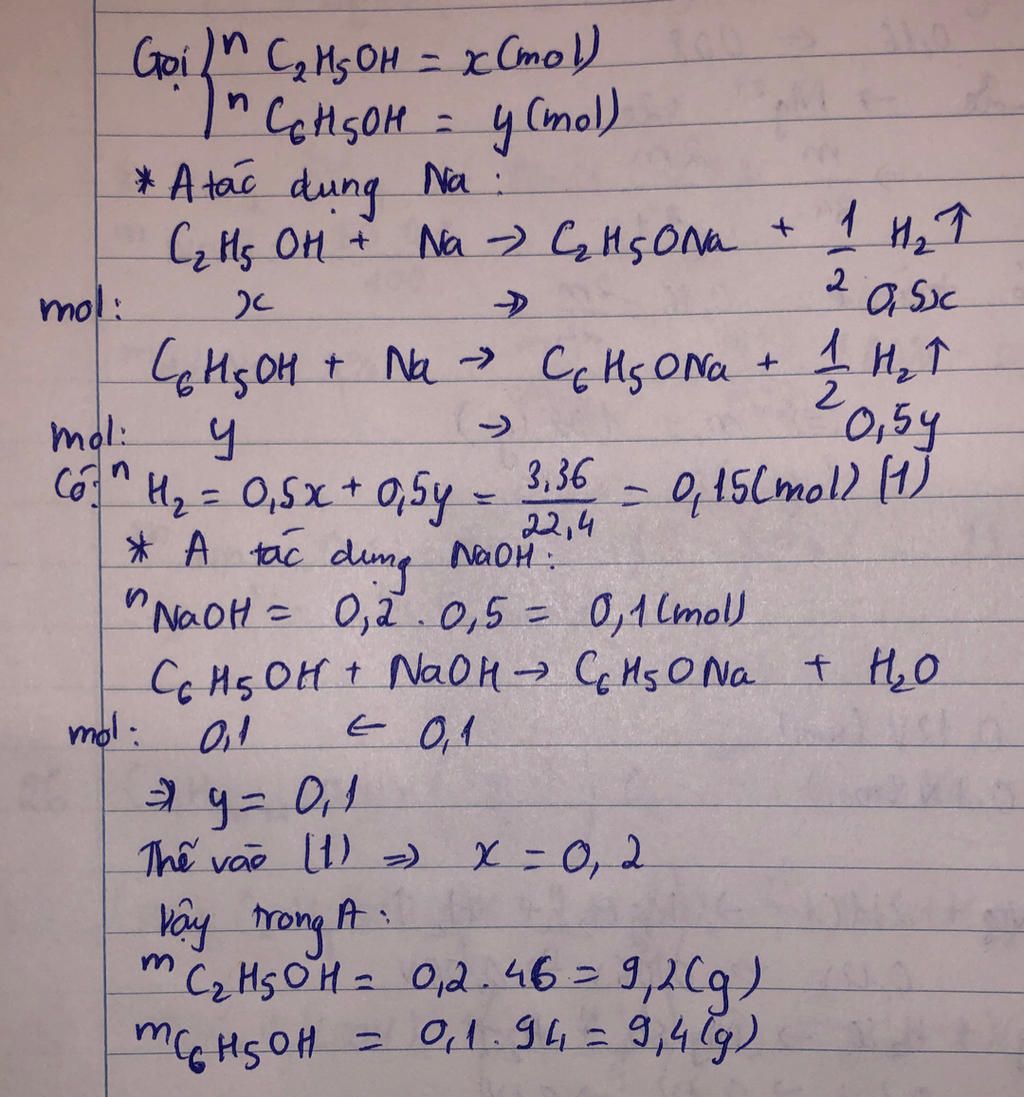 Gọi { n C₂H₅OH = x (mol)
n C₆H₅OH = y (mol)
* A tác dụng Na :
C₂H₅OH + Na → C₂H₅ONa + 1/2 H₂↑
mol: x → 0,5x
C₆H₅OH + Na → C₆H₅ONa + 1/2 H₂↑
mol: y → 0,5y
Có: n H₂ = 0,5x + 0,5y = 3,36/22,4 = 0,15 (mol) (1)
* A tác dụng NaOH :
n NaOH = 0,2 . 0,5 = 0,1 (mol)
C₆H₅OH + NaOH → C₆H₅ONa + H₂O
mol: 0,1 ← 0,1
⇒ y = 0,1
Thế vào (1) ⇒ x = 0,2
Vậy trong A :
m C₂H₅OH = 0,2 . 46 = 9,2 (g)
m C₆H₅OH = 0,1 . 94 = 9,4 (g)